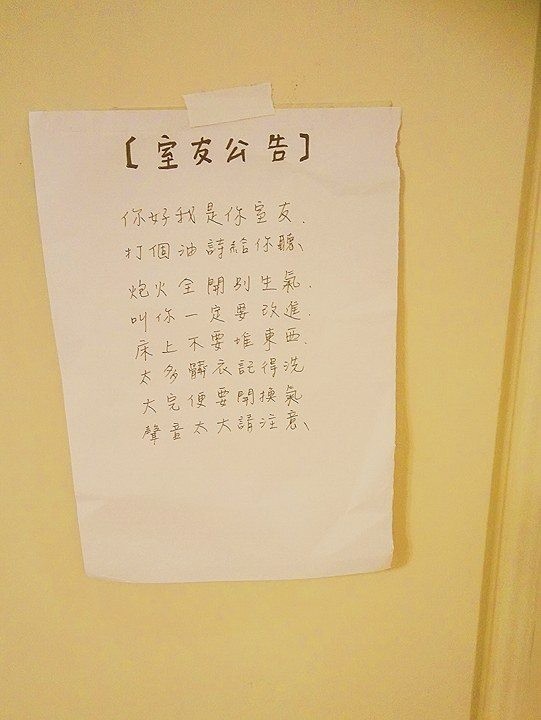 [室友公告]
你好我是你室友.
打個油詩給你聽、
炮火全開別生氣.
叫你一定要改進.
床上不要堆東西、
太多髒衣記得洗
大完便要開換氣
聲音太大請注意、